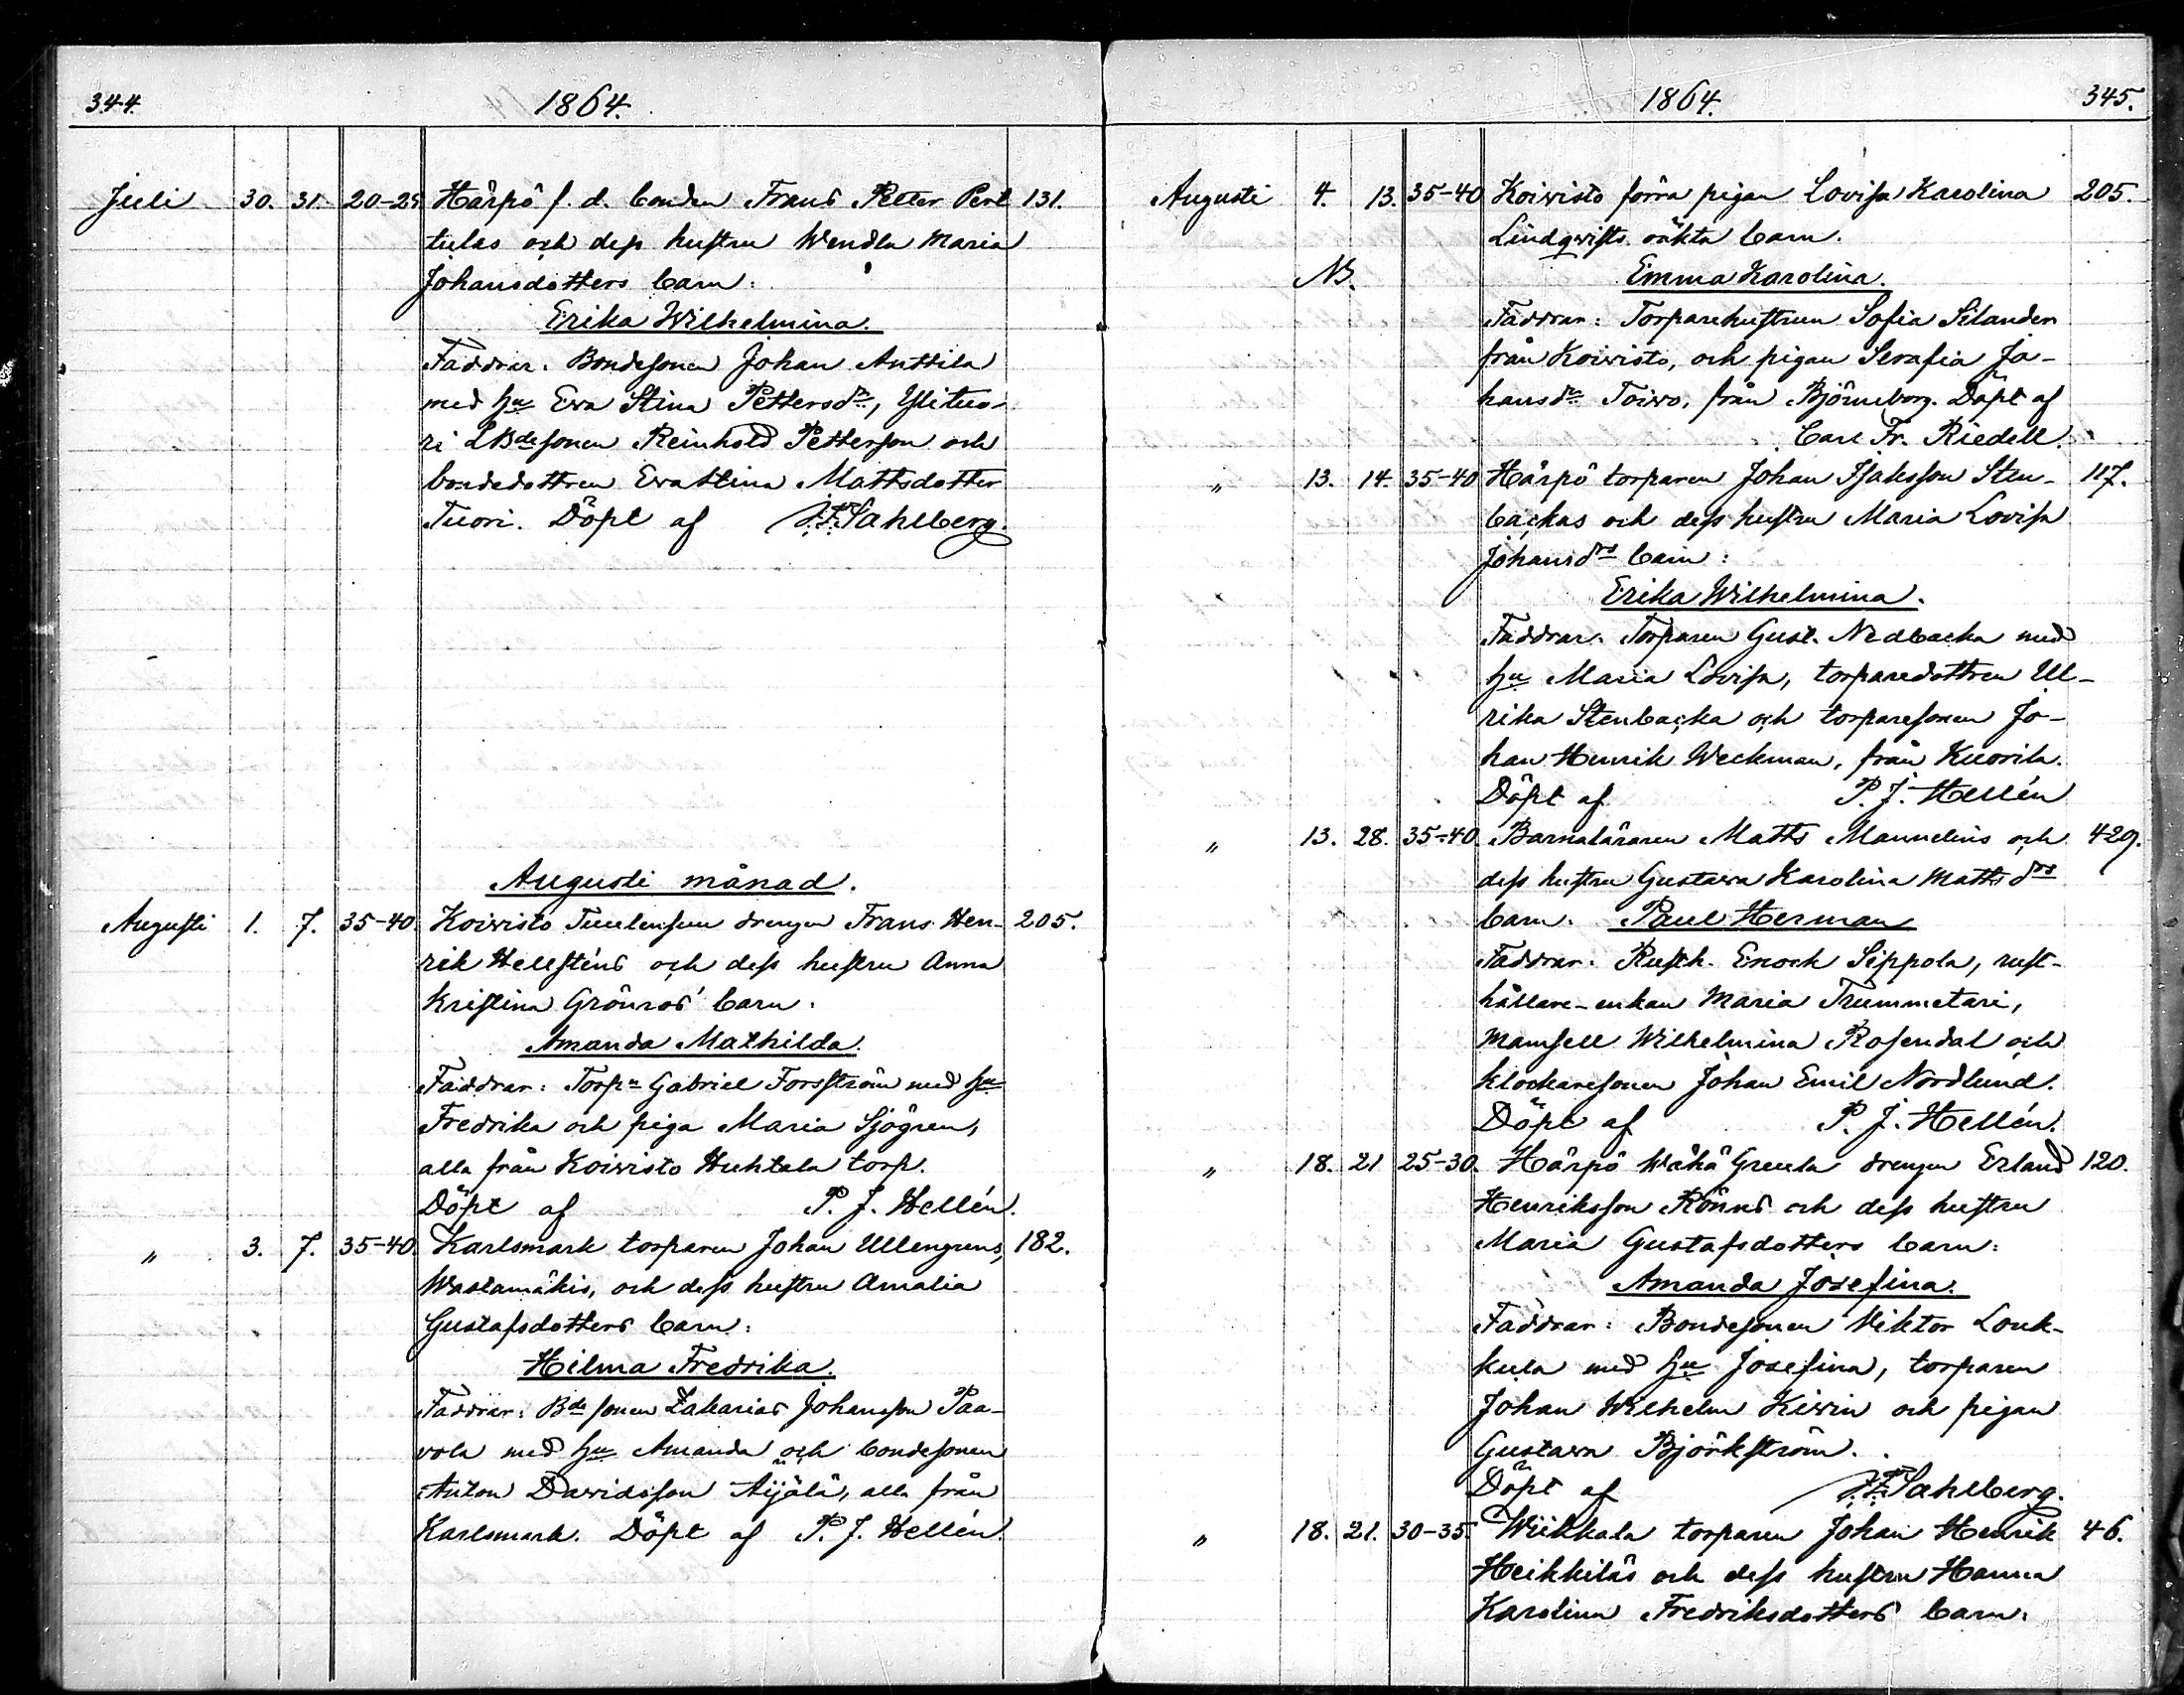 344. 1864.
Juli 30. 31. 20-25 Hårpö f. d. bonden Frans Petter Pert 131.
tulas och dess hustru Wendla Maria
Johansdotters barn:
Erika Wilhelmina.
Faddrar: Bondesonen Johan Anttila
med hu Eva Stina Pettersdr, Ylituo-
ri LBdesonen Reinhold Petterson och
bondedottren Eva Stina Mattsdotter
Tuori. Döpt af Sahlberg.
Augusti månad.
Augusti 1. 7. 35-40 Koivisto drengen Frans Hen- 205.
rik Hellsténs och dess hustru Anna
Kristina Grönros' barn:
Amanda Mathilda.
Faddrar: Torpn Gabriel Forsström med hu
Fredrika och piga Maria Sjögren,
alla från Koivisto Huhtala torp.
Döpt af P. J. Hellén.
" 3. 7. 35-40 Karlsmark torparen Johan Ullengrens, 182.
Wastamäkis, och dess hustru Amalia
Gustafsdotters barn:
Hilma Fredrika.
Faddrar: Bdesonen Zakarias Johansson Paa-
vola med hu Amanda och bondesonen
Anton Davidsson Äijälä, alla från
Karlsmark. Döpt af P. J. Hellén.
1864. 345.
Augusti 4. 13. 35-40 Koivisto förra pigan Lovisa Karolina 205.
Lindqvists oäkta barn.
NB. Emma Karolina.
Faddrar: Torparehustrun Sofia Silander
från Koivisto, och pigan Serafia Jo-
hansdr Toivo, från Björneborg. Döpt af
Carl Fr. Riedell.
" 13. 14. 35-40 Hårpö torparen Johan Isaksson Sten- 117.
backas och dess hustru Maria Lovisa
Johansdrs barn:
Erika Wilhelmina.
Faddrar: Torparen Gust. Nedbacka med
hu Maria Lovisa, torparedottren Ul-
rika Stenbacka och torparesonen Jo-
han Henrik Weckman, från Kuorila.
Döpt af P. J. Hellén
" 13. 28. 35-40. Barnaläraren Matts Mannelins och 429.
dess hustru Gustava Karolina Mattsdrs
barn: Paul Herman
Faddrar: Rusth. Enock Sippola, rust-
hållare-enkan Maria Trummetari,
Mamsell Wilhelmina Rosendal och
klockaresonen Johan Emil Nordlund.
Döpt af P. J. Hellén.
" 18. 21 25-30. Hårpö Wähä Greula drengen Erland 120.
Henriksson Rönns och dess hustru
Maria Gustafsdotters barn:
Amanda Josefina.
Faddrar: Bondesonen Viktor Louk-
kula med hu Josefina, torparen
Johan Wilhelm Kivin och pigan
Gustava Björkström.
Döpt af Sahlberg.
" 18. 21. 30-35 Wiikkala torparen Johan Henrik 46.
Heikkiläs och dess hustru Hanna
Karolina Fredriksdotters barn: